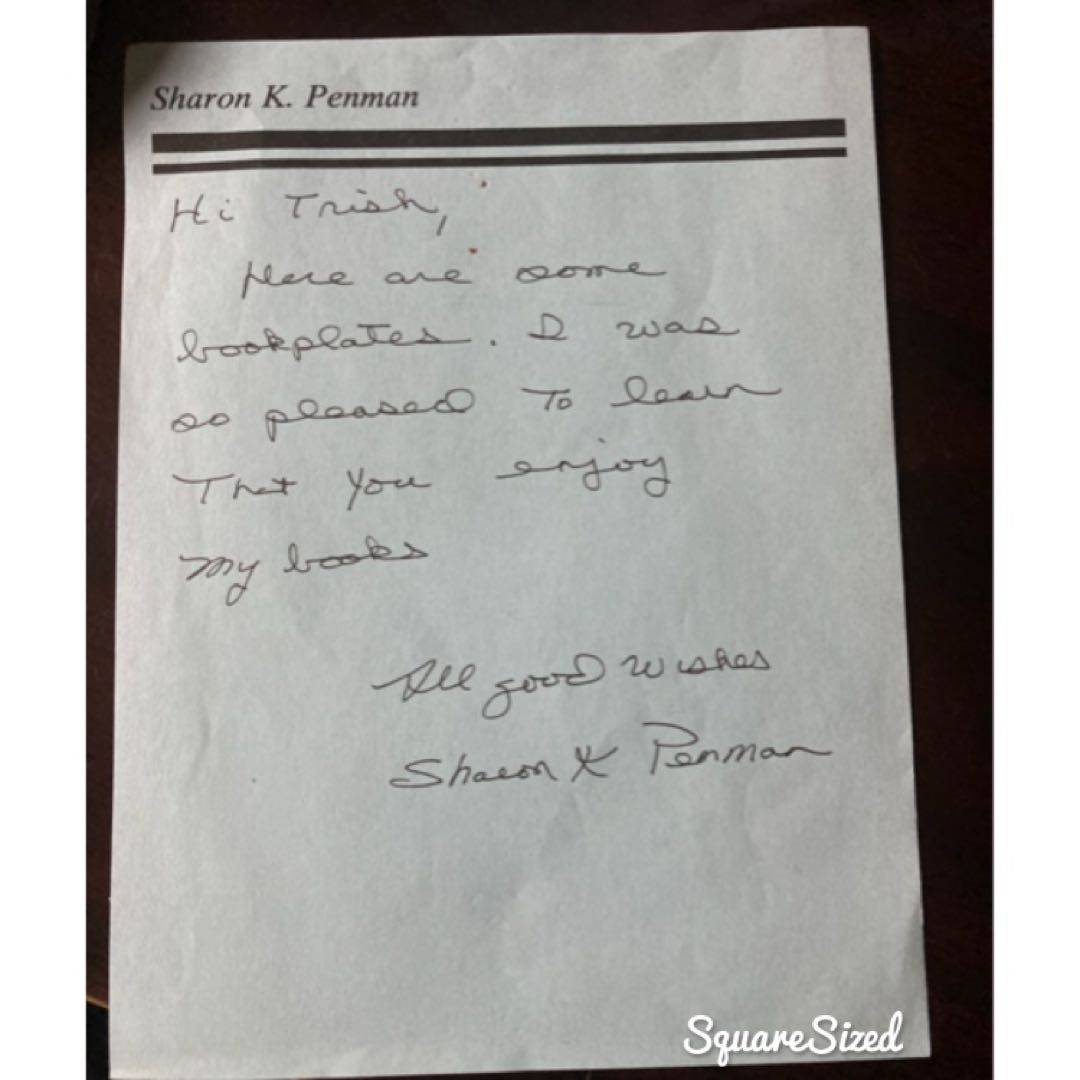 Sharon K. Penman
Hi Trish,
Here are some
bookplates. I was
so pleased to learn
That you enjoy
my books
All good wishes
Sharon K Penman
SquareSized